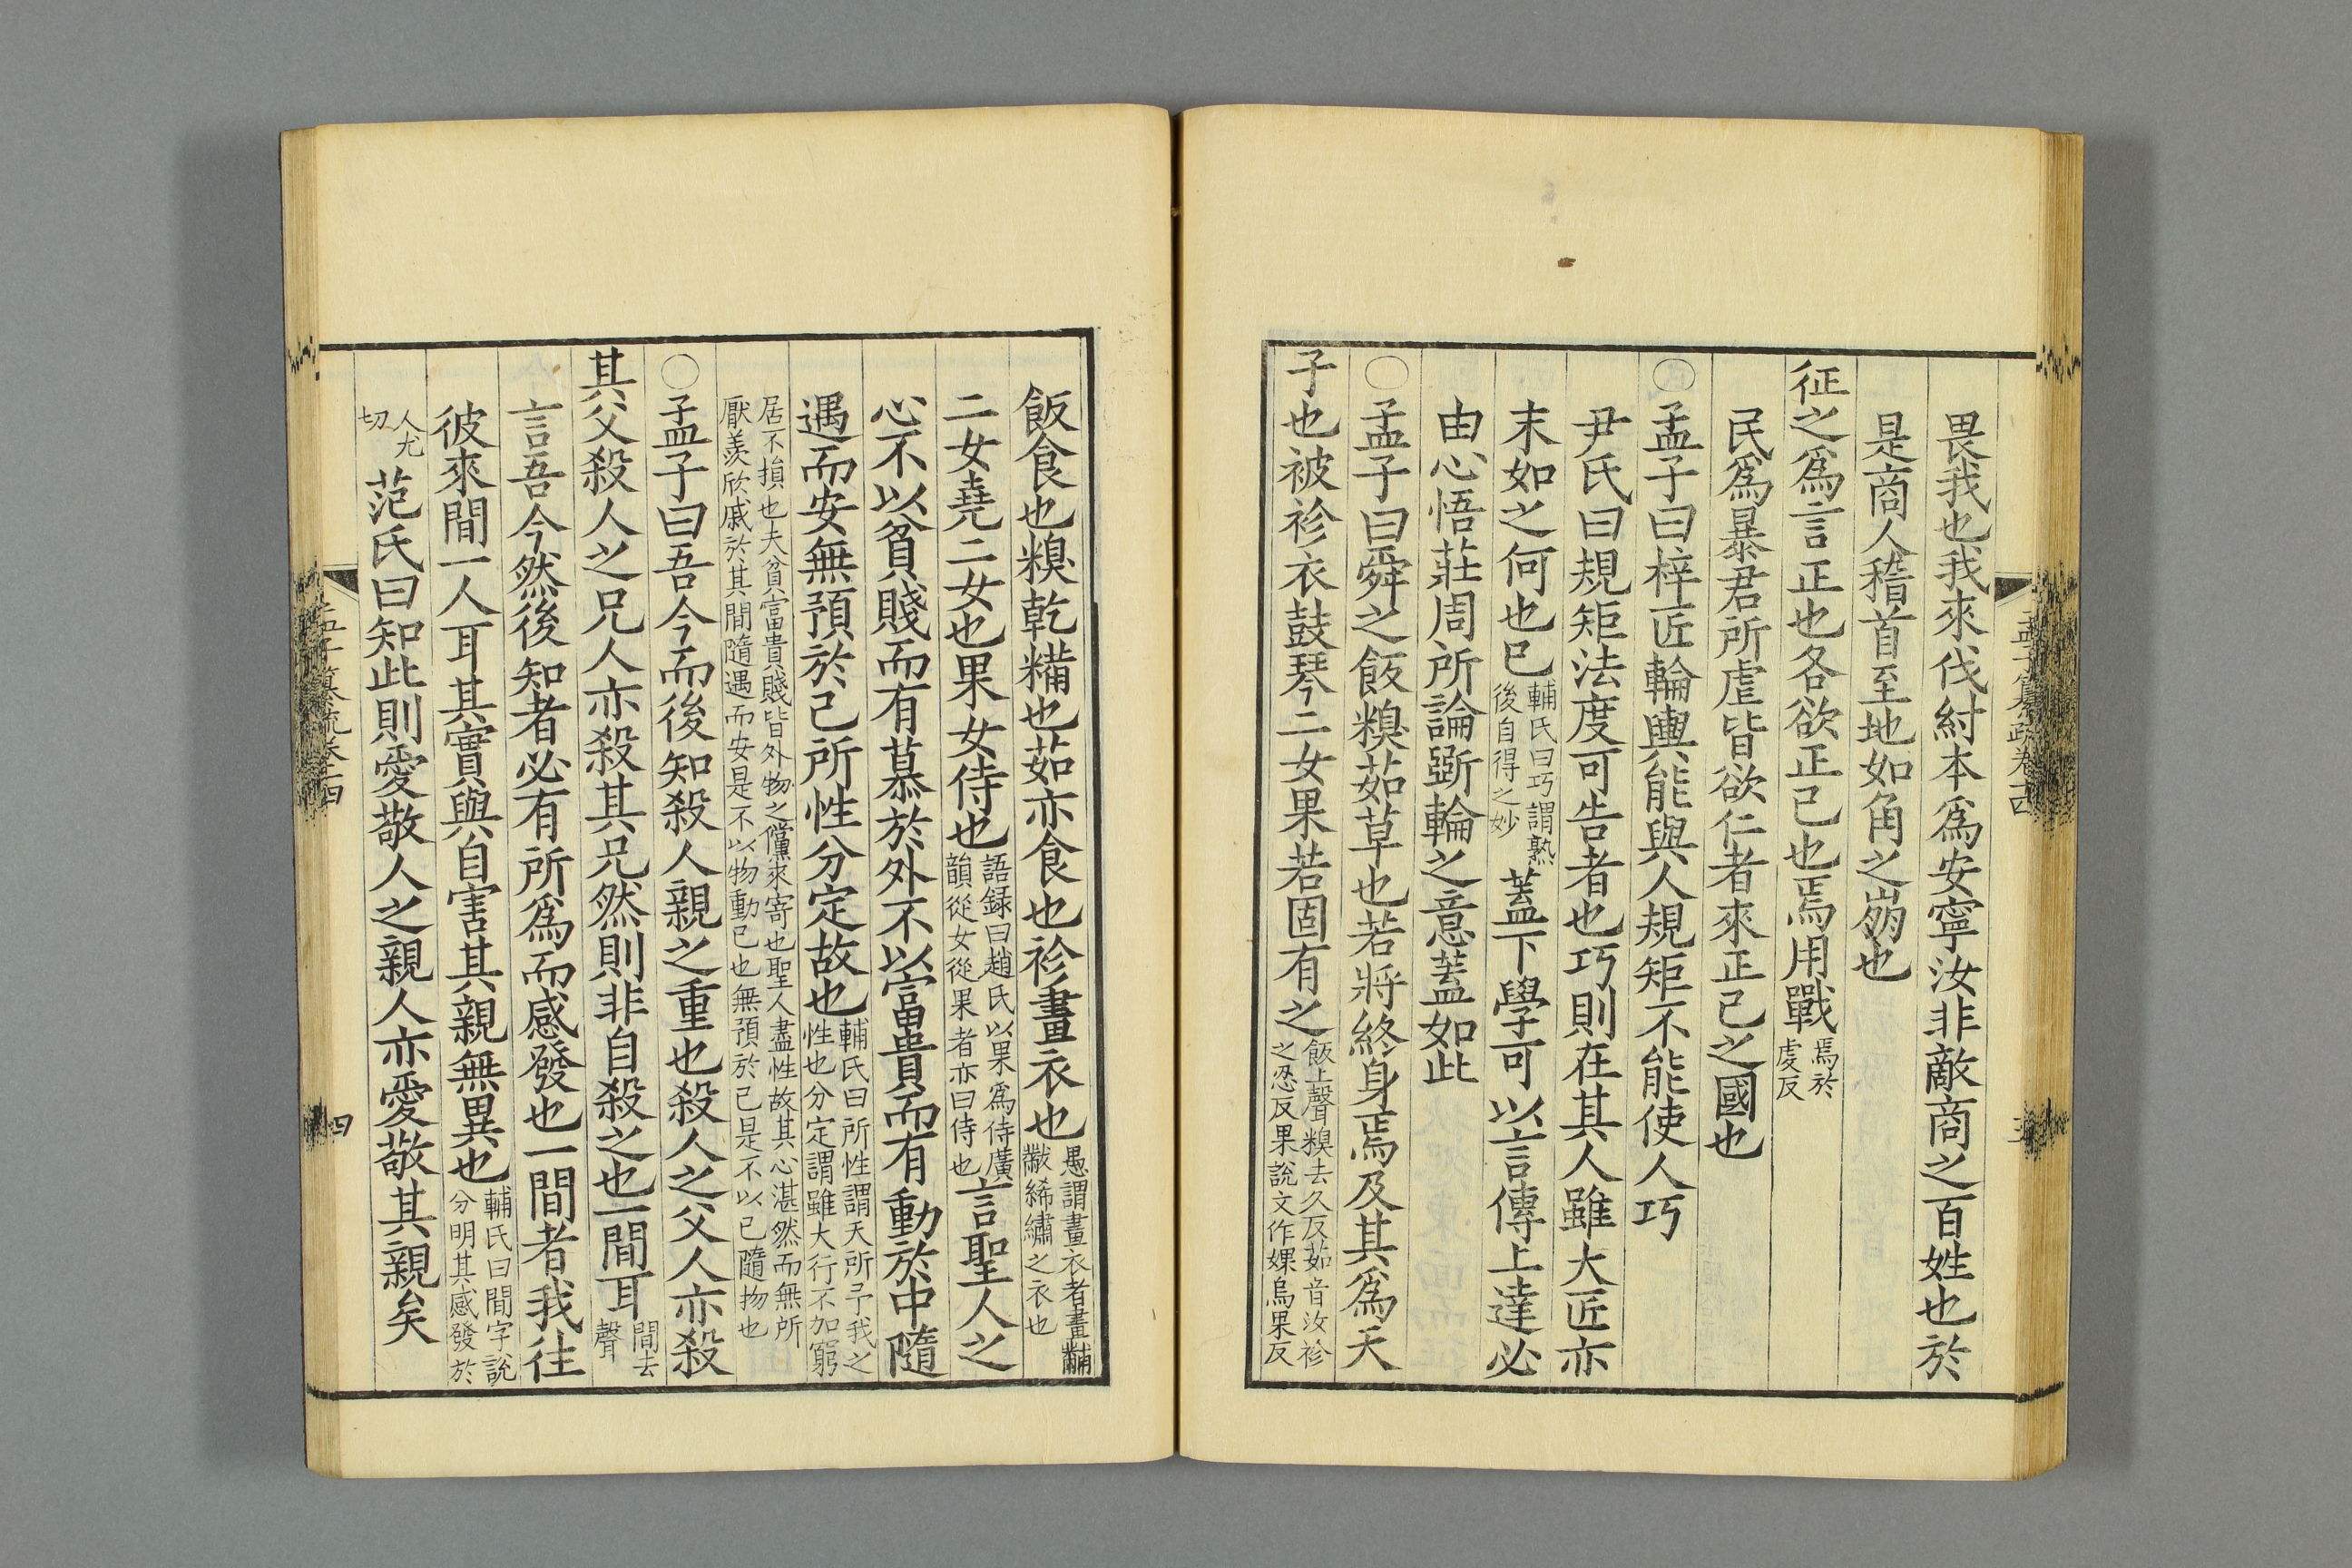 孟子纂疏卷十四
畏我也我來伐紂本爲安寧汝非敵商之百姓也於
是商人稽首至地如角之崩也
征之爲言正也各欲正己也焉用戰焉於
虔反
民爲暴君所虐皆欲仁者來正己之國也
○孟子曰梓匠輪輿能與人規矩不能使人巧
尹氏曰規矩法度可告者也巧則在其人雖大匠亦
末如之何也已輔氏曰巧謂熟
後自得之妙蓋下學可以言傳上達必
由心悟莊周所論斲輪之意蓋如此
○孟子曰舜之飯糗茹草也若將終身焉及其爲天
子也被袗衣鼓琴二女果若固有之飯上聲糗去久反茹音汝袗
之忍反果說文作婐烏果反
飯食也糗乾糒也茹亦食也袗畫衣也愚謂畫衣者畫黼
黻絺繡之衣也
二女堯二女也果女侍也語録曰趙氏以果爲侍廣
韻從女從果者亦曰侍也言聖人之
心不以貧賤而有慕於外不以富貴而有動於中隨
遇而安無預於己所性分定故也輔氏曰所性謂天所予我之
性也分定謂雖大行不加窮
居不損也夫貧富貴賤皆外物之儻來寄也聖人盡性故其心湛然而無所
厭羨欣戚於其間隨遇而安是不以物動己也無預於己是不以己隨物也
○孟子曰吾今而後知殺人親之重也殺人之父人亦殺
其父殺人之兄人亦殺其兄然則非自殺之也一間耳間去
聲
言吾今然後知者必有所爲而感發也一間者我往
彼來間一人耳其實與自害其親無異也輔氏曰間字說
分明其感發於
人尤
切范氏曰知此則愛敬人之親人亦愛敬其親矣
孟子纂疏卷十四
四